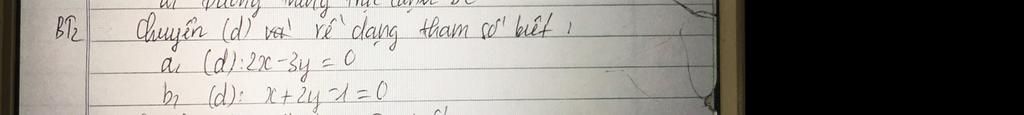 BT2 Chuyển (d) về dạng tham số biết:
a, (d): 2x - 3y = 0
b, (d): x + 2y - 1 = 0